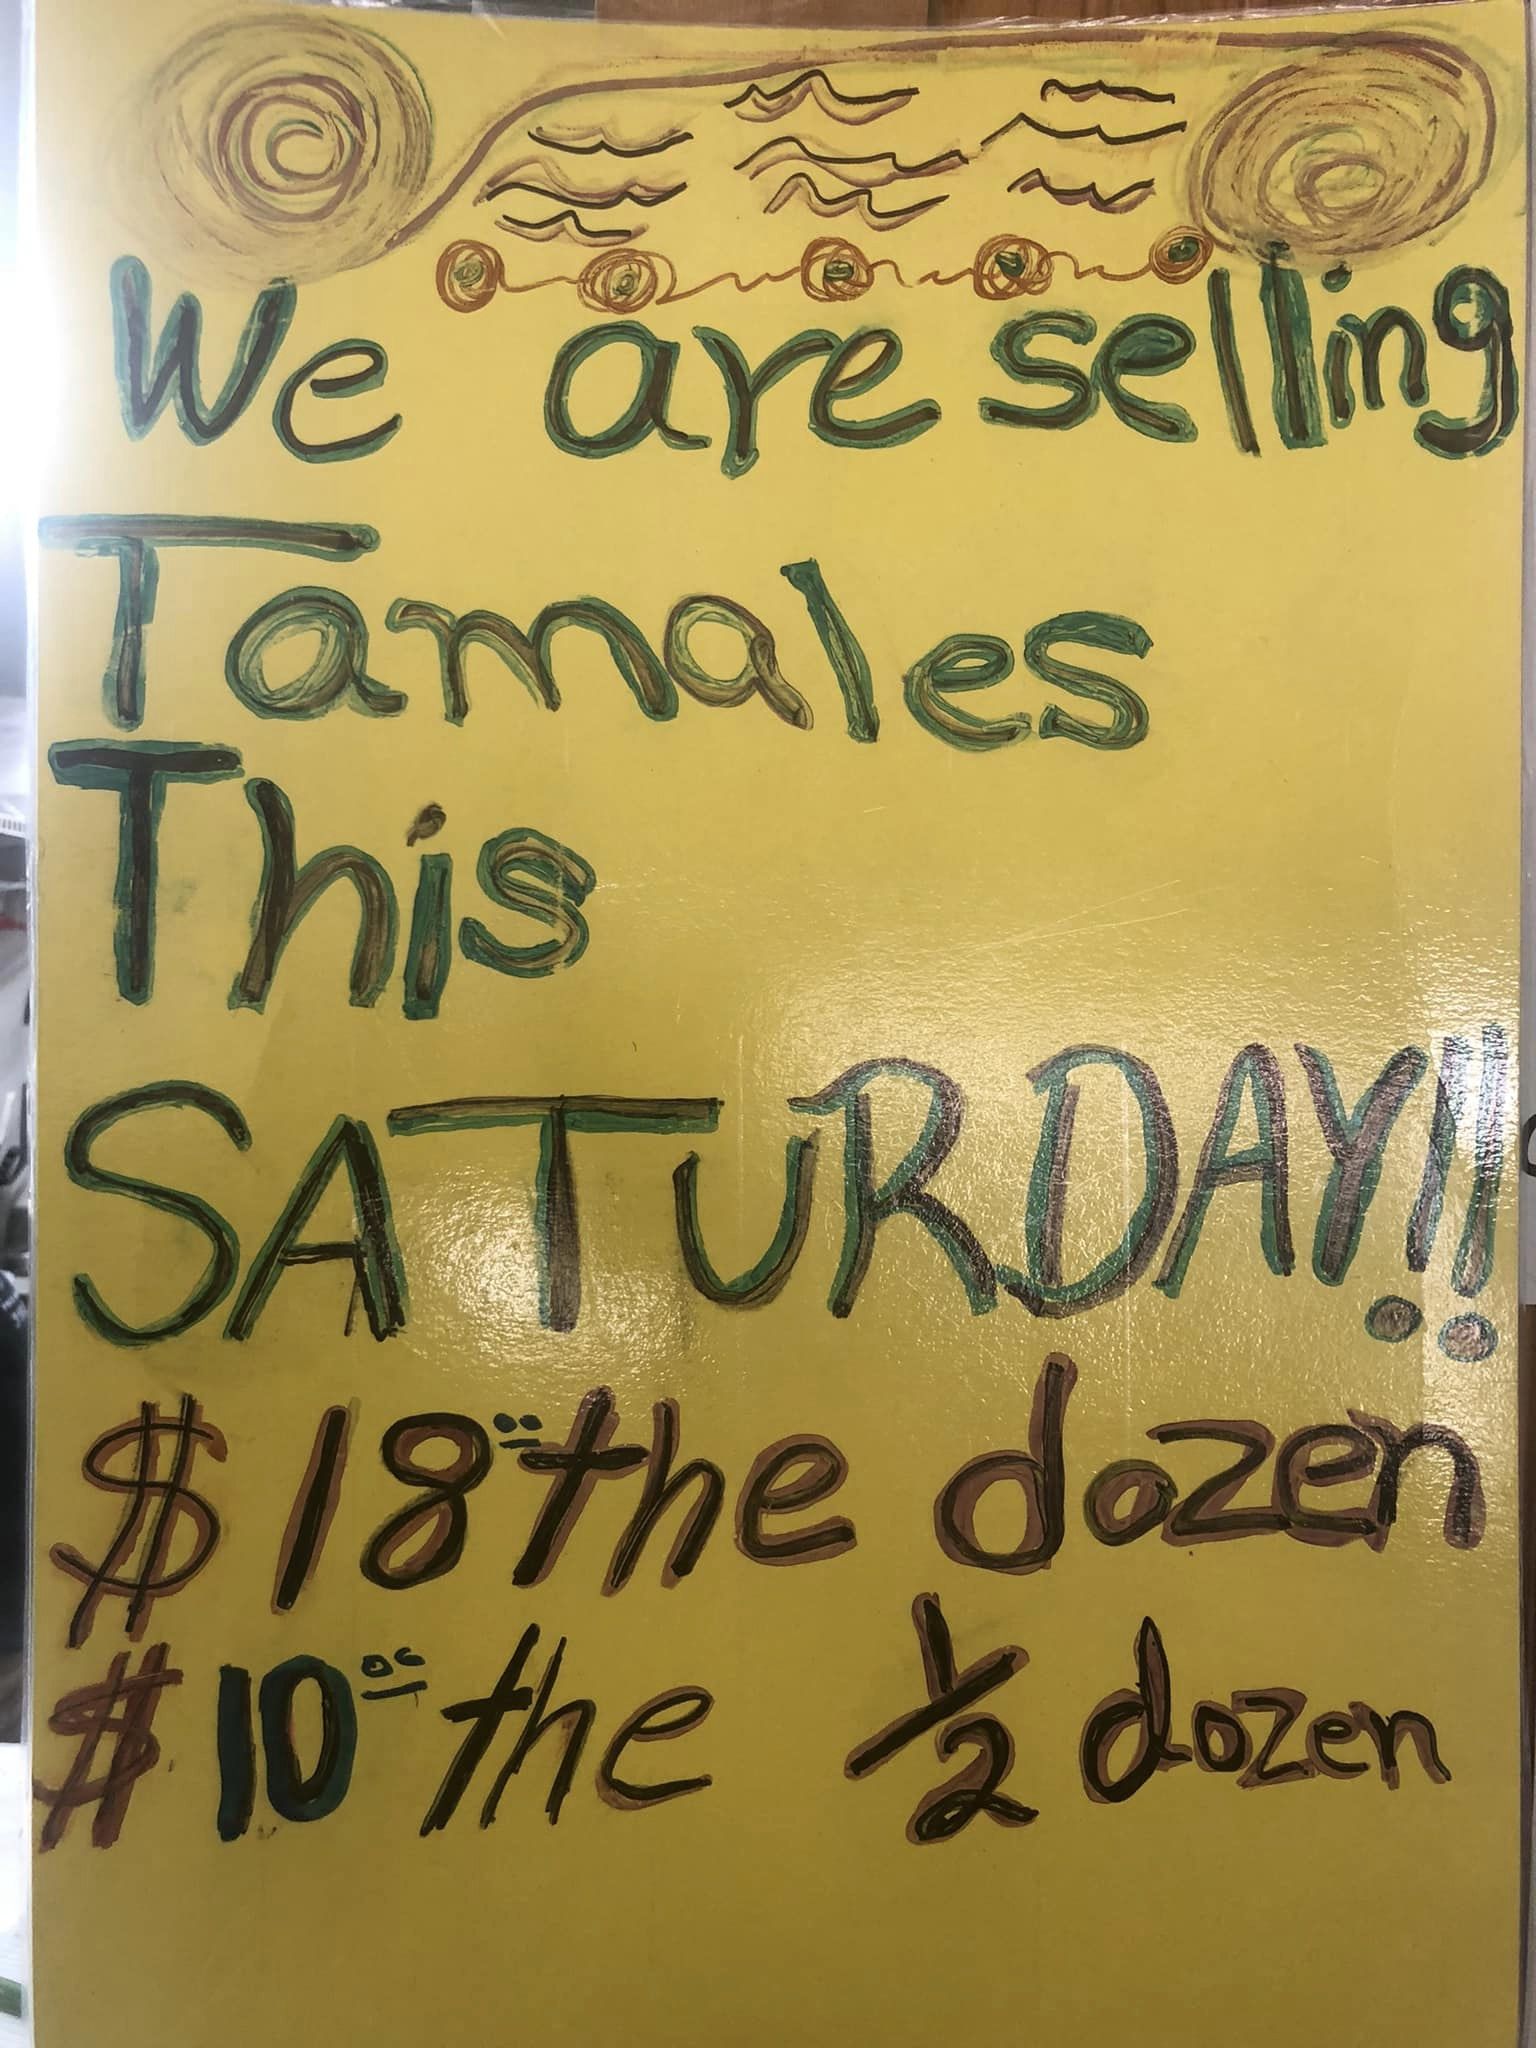 We are selling
Tamales
This
SATURDAY!!
$18.00 the dozen
$10.00 the 1/2 dozen